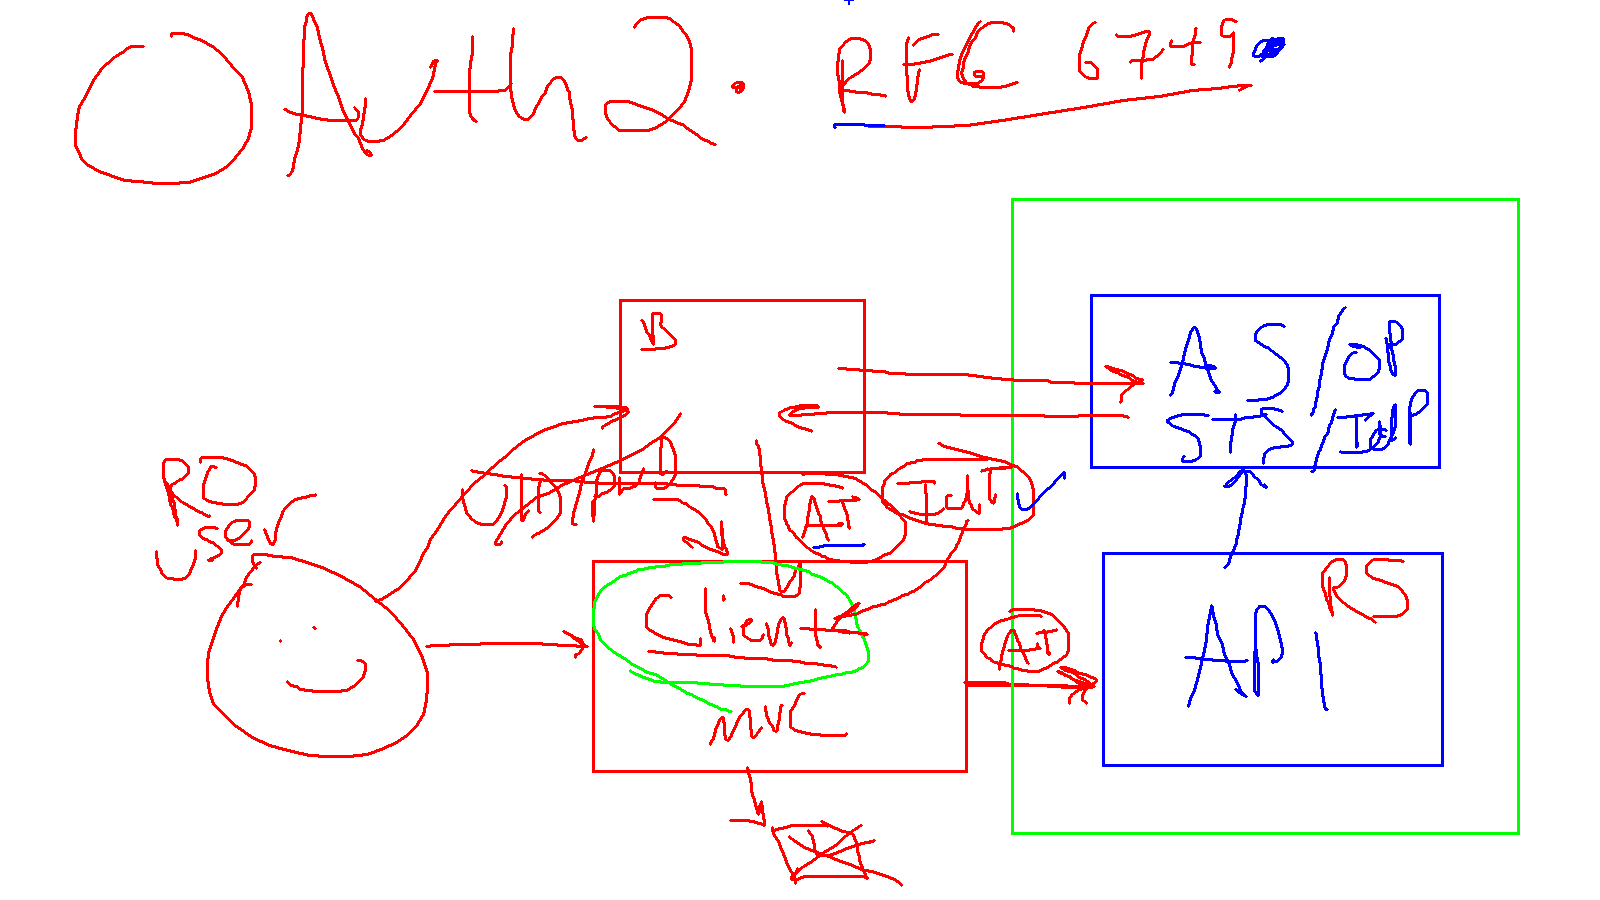 OAuth2. RFC 6749
B
AS/OP
STS/IdP
RO
user
UID/pwd
AT
IdT
Client
MVC
AT
RS
API